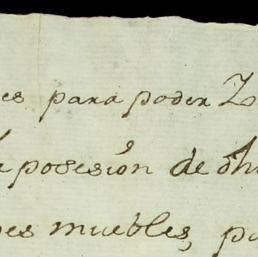 es para poder
posesión de dh
es muebles, p